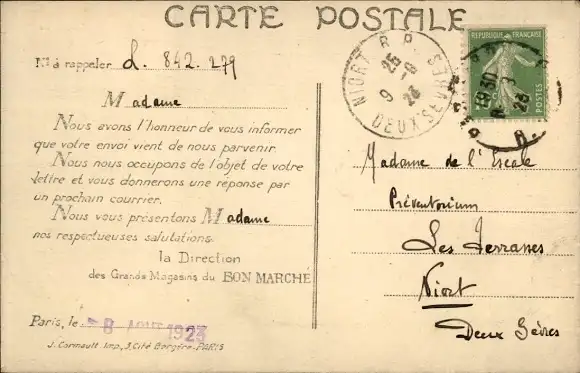 CARTE POSTALE
N° à rappeler L. 842.279
Madame
Nous avons l'honneur de vous informer
que votre envoi vient de nous parvenir.
Nous nous occupons de l'objet de votre
lettre et vous donnerons une réponse par
un prochain courrier.
Nous vous présentons Madame
nos respectueuses salutations.
la Direction
des Grands Magasins du BON MARCHÉ
Paris, le 8 AOUT 1923
J. Cormault Imp., 3, Cité Bergère-PARIS
NIORT R.P.
DEUX-SEVRES
REPUBLIQUE FRANÇAISE
POSTES
Madame de l'Escale
Préventorium
Les Terrasses
Niort
Deux Sèvres